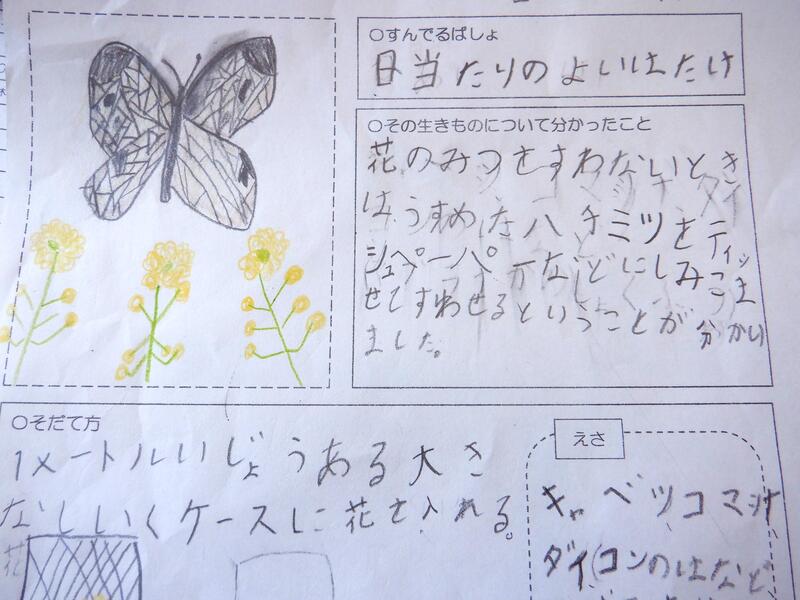 ○すんでるばしょ
日当たりのよいはたけ
○その生きものについて分かったこと
花のみつをすわないとき
はうすめたハチミツをティッ
シュペーパーなどにしみこま
せてすわせるということが分かり
ました。
○そだて方
1メートルいじょうある大き
なしいくケースに花を入れる。
花
えさ
キャベツコマツナ
ダイコンのはなど